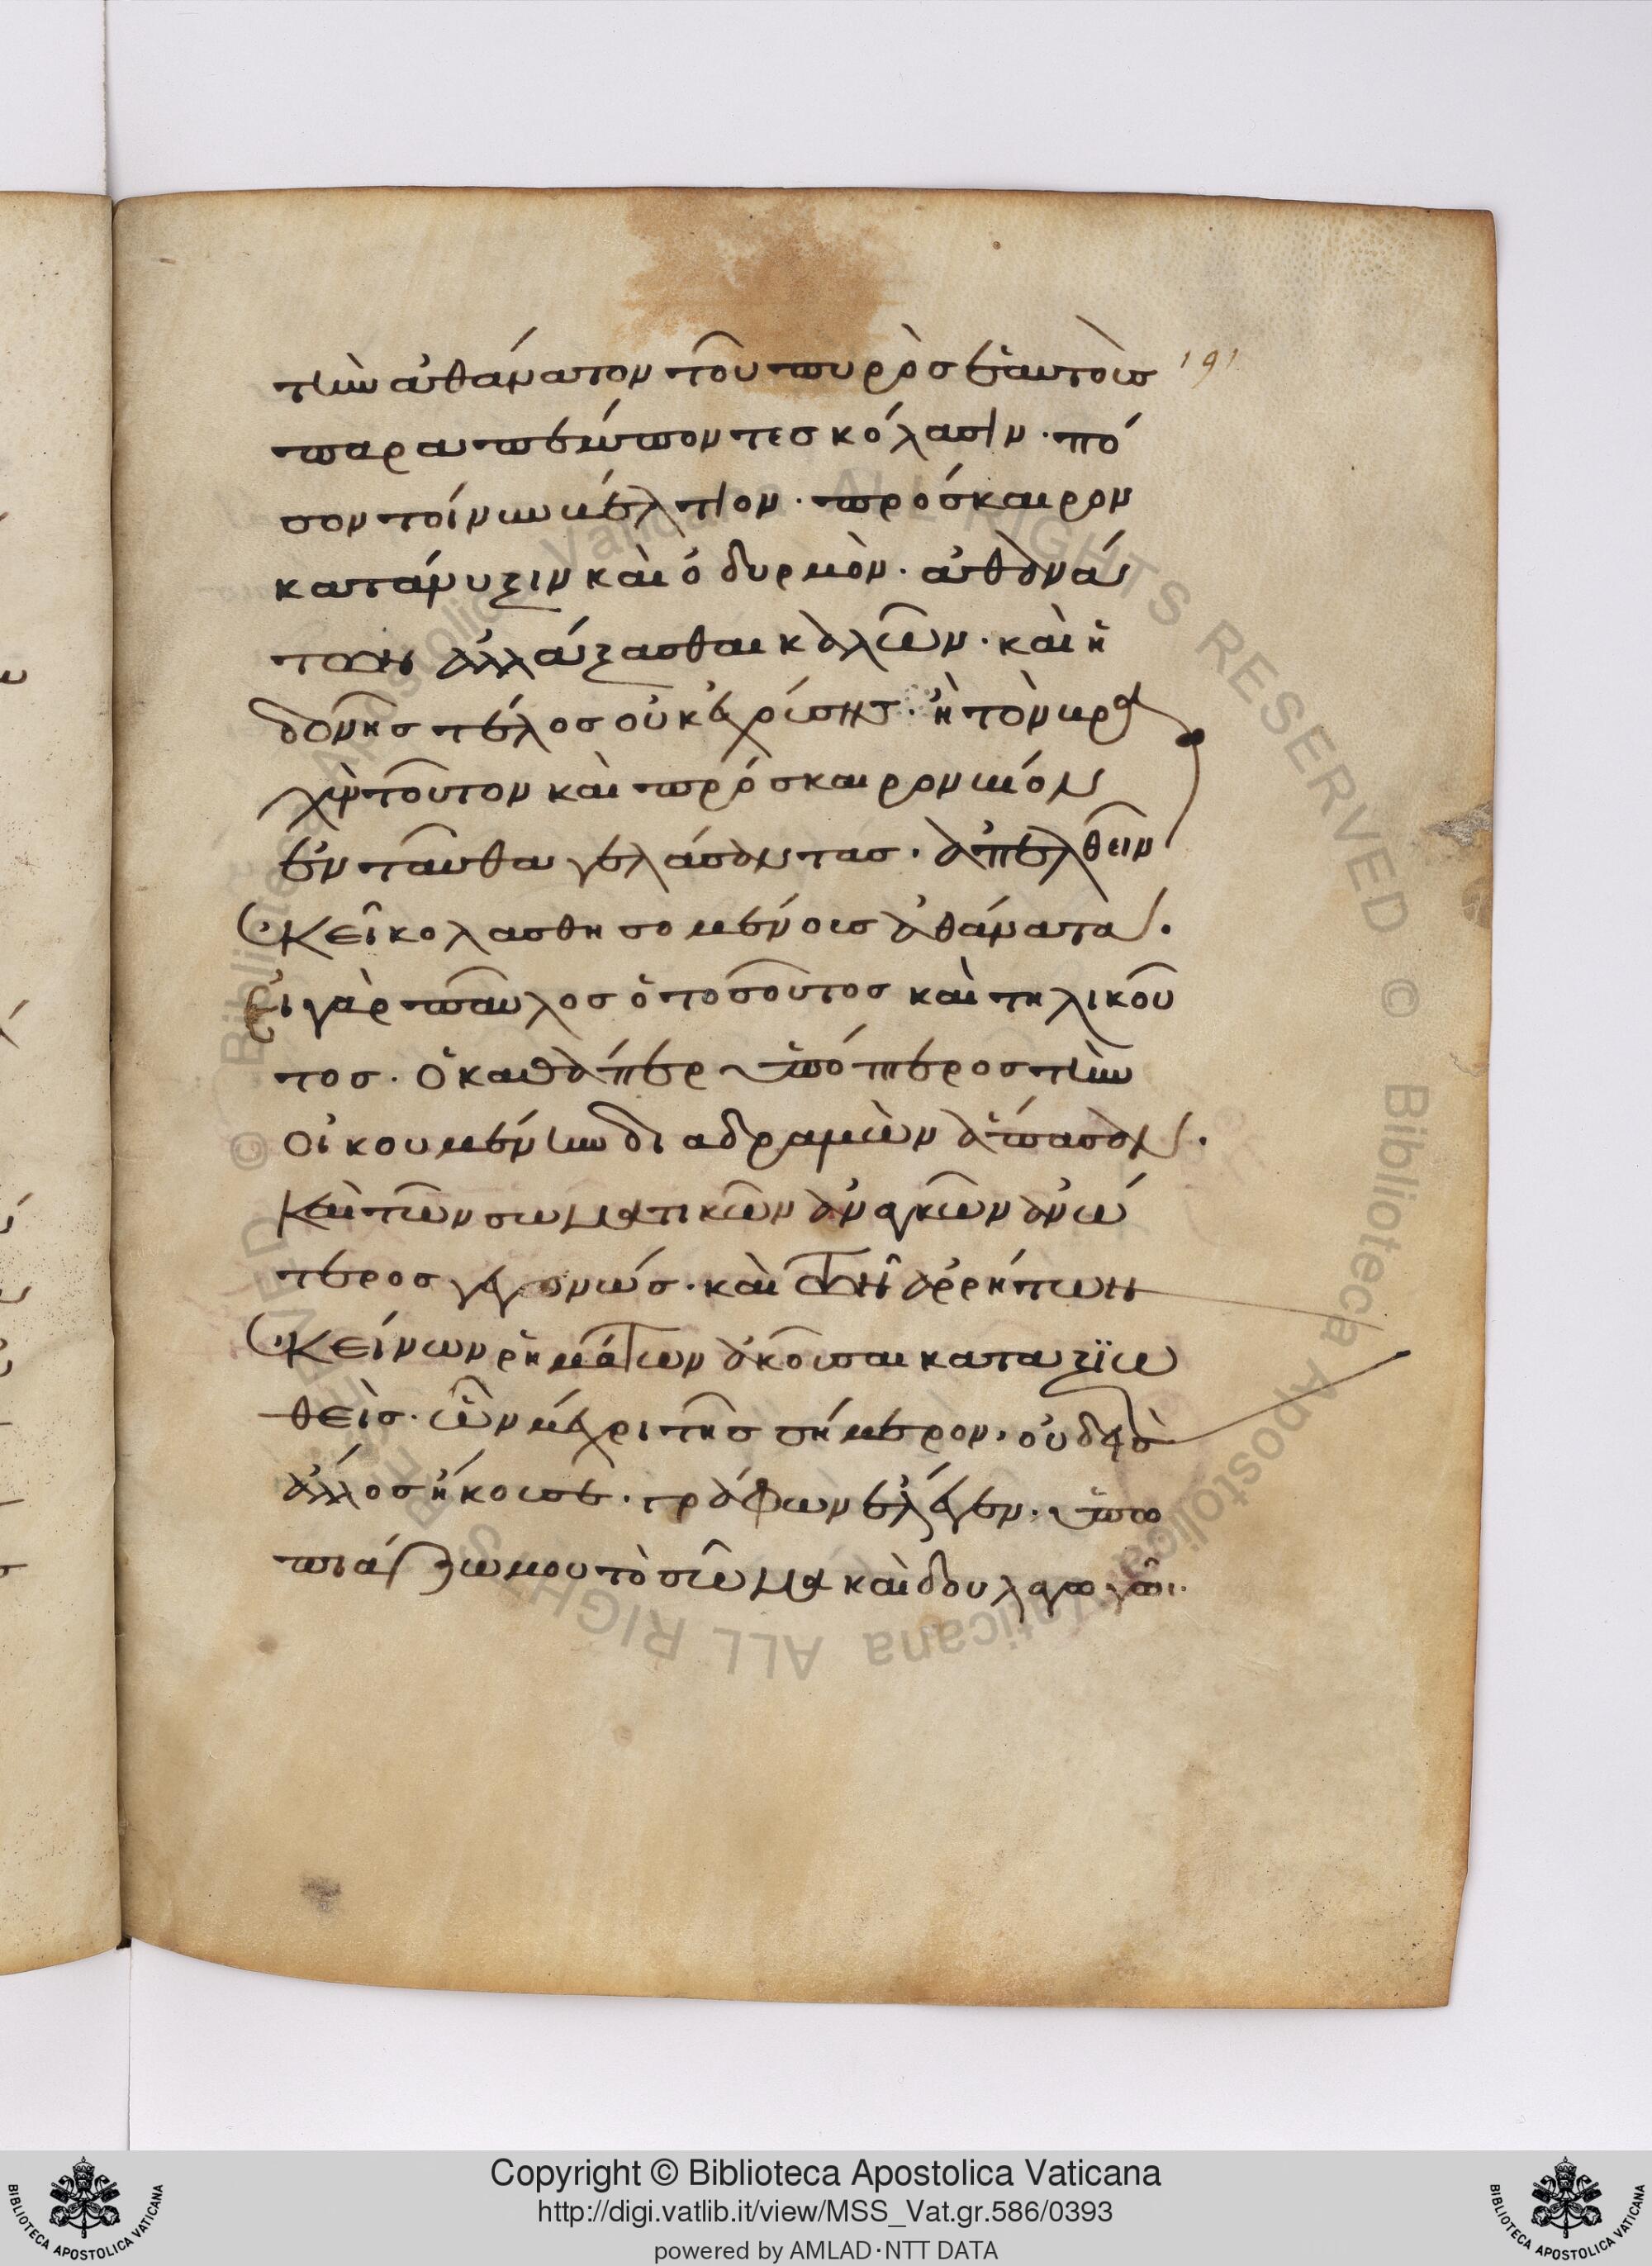 τὴν ἀθάνατον τοῦ πυρὸς ἑαυτοῖς
191
παραπέμποντες κόλασιν· πό
σον τοίνυν βέλτιον· πρόσκαιρον
κατάνυξιν καὶ ὀδυρμὸν· ἀθανά
των ἀλλάξασθαι καλῶν· καὶ ἡ
δονῆς τέλος οὐκ ἐχούσης· ἢ τὸν βρα
χὺν τοῦτον καὶ πρόσκαιρον βίον
ἐνταῦθα γελάσαντας· ἀπελθεῖν
ἐκεῖ κολασθησομένους ἀθάνατα·
Εἰ γὰρ παῦλος ὁ τοσοῦτος καὶ τηλικοῦ
τος· ὁ καθάπερ ὑπόπτερος τὴν
οἰκουμένην διαδραμὼν ἅπασαν·
καὶ τῶν σωματικῶν ἀναγκῶν ἀνώ
τερος γεγονώς· καὶ τῶν ἀρρήτων
ἐκείνων ῥημάτων ἀκοῦσαι καταξιω
θεὶς· ὧν μέχρι τῆς σήμερον· οὐδεὶς
ἄλλος ἤκουσε· γράφων ἔλεγεν· ὑπο
πιάζω μου τὸ σῶμα καὶ δουλαγωγῶ·
Copyright © Biblioteca Apostolica Vaticana
http://digi.vatlib.it/view/MSS_Vat.gr.586/0393
powered by AMLAD·NTT DATA
BIBLIOTECA APOSTOLICA VATICANA
BIBLIOTECA APOSTOLICA VATICANA